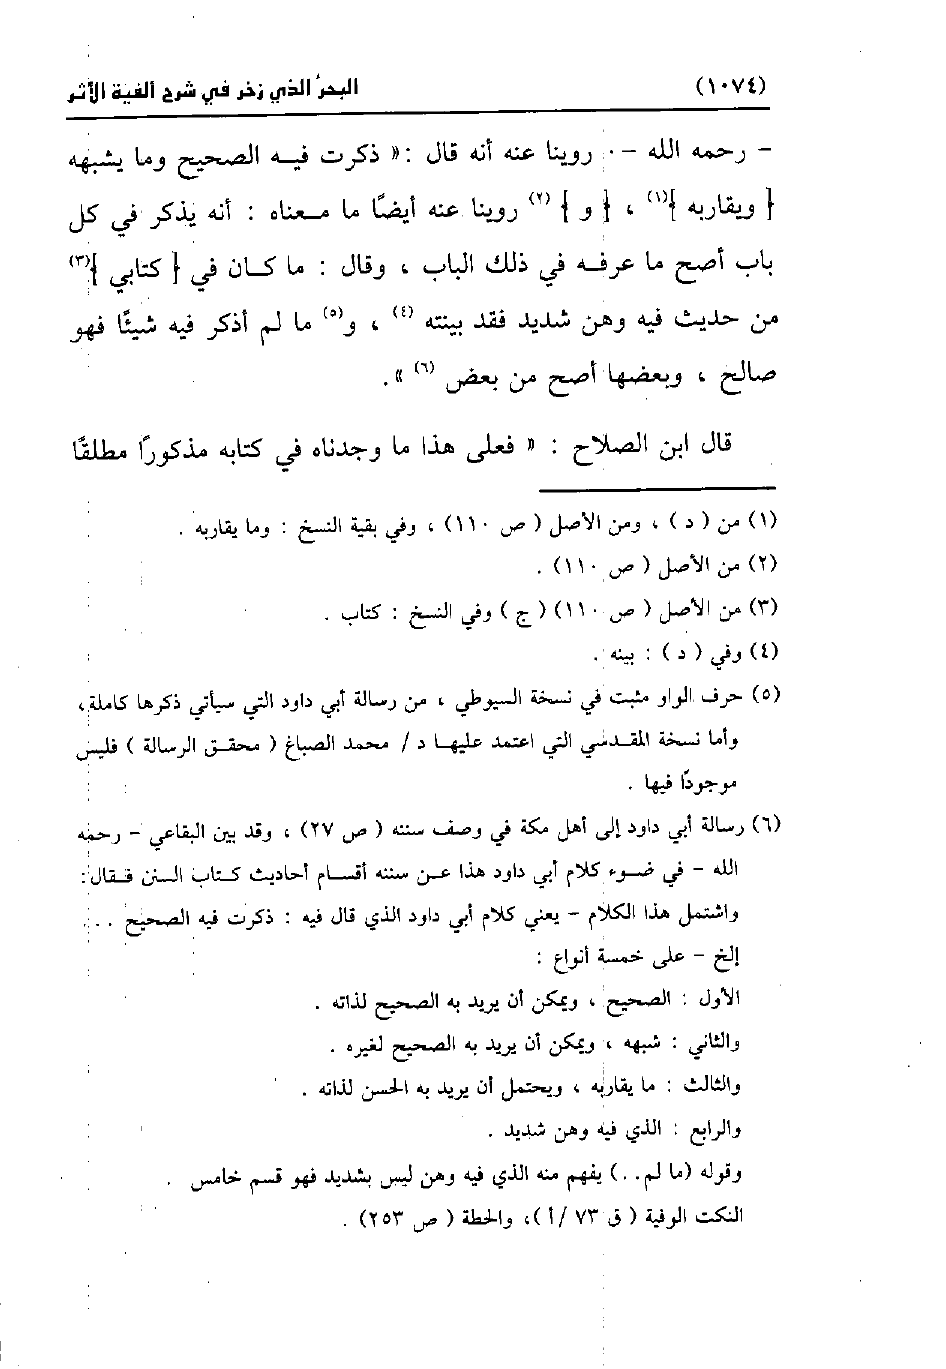 (١٠٧٤) البحرُ الذي زخر في شرح ألفية الأثر
- رحمه الله - . روينا عنه أنه قال : « ذكرت فيه الصحيح وما يشبهه
{ ويقاربه }(١) ، { و } (٢) روينا عنه أيضًا ما معناه : أنه يذكر في كل
باب أصح ما عرفه في ذلك الباب ، وقال : ما كان في { كتابي }(٣)
من حديث فيه وهن شديد فقد بينته (٤) ، و(٥) ما لم أذكر فيه شيئًا فهو
صالح ، وبعضها أصح من بعض (٦) » .
قال ابن الصلاح : « فعلى هذا ما وجدناه في كتابه مذكورًا مطلقًا
(١) من ( د ) ، ومن الأصل ( ص ١١٠ ) ، وفي بقية النسخ : وما يقاربه .
(٢) من الأصل ( ص ١١٠ ) .
(٣) من الأصل ( ص ١١٠ ) ( ج ) وفي النسخ : كتاب .
(٤) وفي ( د ) : بينه .
(٥) حرف الواو مثبت في نسخة السيوطي ، من رسالة أبي داود التي سيأتي ذكرها كاملة ،
وأما نسخة المقدسي التي اعتمد عليها د / محمد الصباغ ( محقق الرسالة ) فليس
موجودًا فيها .
(٦) رسالة أبي داود إلى أهل مكة في وصف سننه ( ص ٢٧ ) ، وقد بين البقاعي - رحمه
الله - في ضوء كلام أبي داود هذا عن سننه أقسام أحاديث كتاب السنن فقال :
واشتمل هذا الكلام - يعني كلام أبي داود الذي قال فيه : ذكرت فيه الصحيح . . .
إلخ - على خمسة أنواع :
الأول : الصحيح ، ويمكن أن يريد به الصحيح لذاته .
والثاني : شبهه ، ويمكن أن يريد به الصحيح لغيره .
والثالث : ما يقاربه ، ويحتمل أن يريد به الحسن لذاته .
والرابع : الذي فيه وهن شديد .
وقوله (ما لم. .) يفهم منه الذي فيه وهن ليس بشديد فهو قسم خامس .
النكت الوفية ( ق ٧٣ /أ )، والحطة ( ص ٢٥٣ ) .